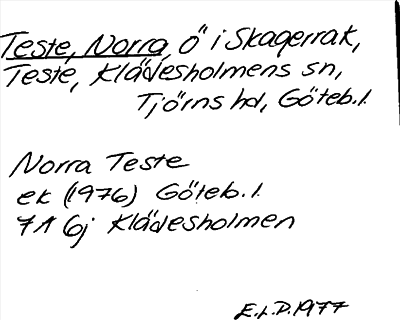 Teste, Norra, Ö i Skagerrak,
Teste, Klädesholmens sn,
Tjörns hd, Göteb. l.
Norra Teste
ek (1976) Göteb. l.
7A 6j Klädesholmen
E.L.D. 1977